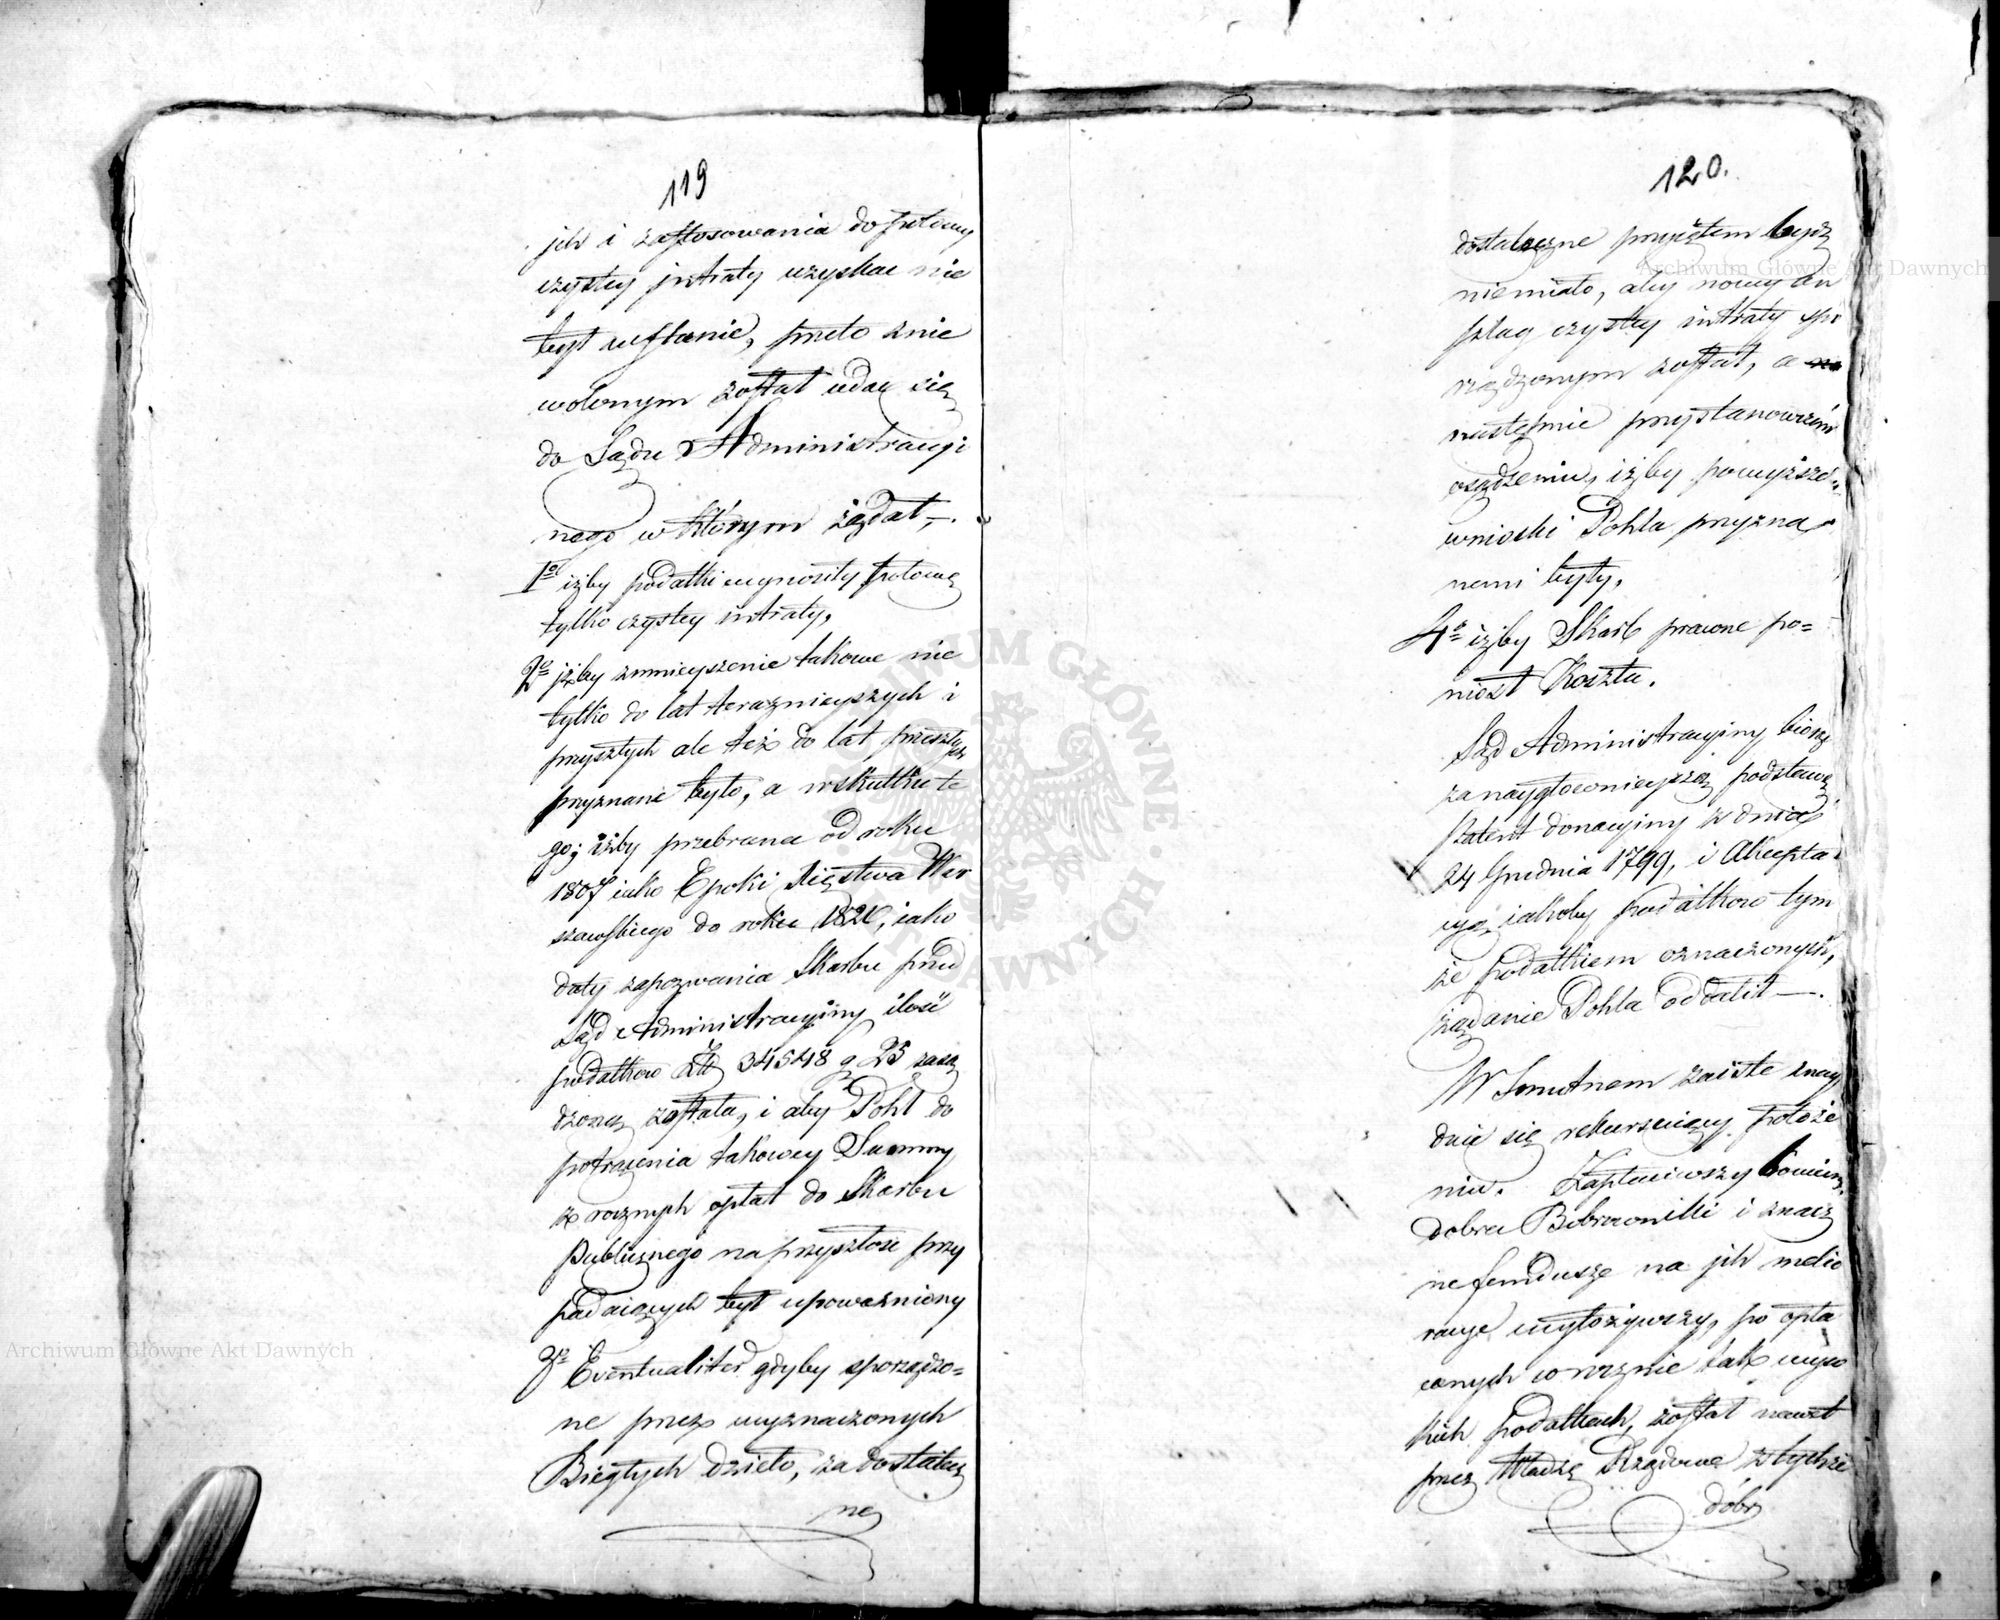 119
jch i zastosowania do połowy
czystey jntraty uzyskać nie
był wstanie, przeto znie
wolonym został udać się
do Sądu Administracyi
nego w którym żądał,—.
1º iżby podatki wynosiły połowę
tylko czystey intraty,
2º jżby zmnieyszenie takowe nie
tylko do lat teraznieyszych i
przyszłych ale też do lat przeszłych
przyznane było, a wskutku te
go; iżby przebrana od roku
1807 iako Epoki Xięstwa War
szawskiego do roku 1820, iako
daty zapozwania Skarbu przed
Sąd Administracyiny ilość
podatków Zł 34548 g 25 zasą
dzoną została, i aby Pohl do
potrącenia takowey Summy
z rocznych opłat do Skarbu
Publicznego naprzyszłość przy
padaiących był upoważniony
3º Eventualiter gdyby sporządzo=
ne przez wyznaczonych
Biegłych dzieło, za dostatecz
ne
120.
dostateczne przyiętem bydź
niemiało, aby nowy an
szlag czystey intraty spo
rządzonym został, a
następnie przystanowczém
osądzeniu, iżby powyższe
wnioski Pohla przyzna
nemi były,
4º iżby Skarb prawne po=
niósł Koszta.
Sąd Administracyiny biorąc
za naygłównieyszą podstawę
Patent donacyiny z dnia
24 Grudnia 1799, i Akcepta
cyą iakoby podatków tym
że podatkiem oznaczonych,
żądanie Pohla oddalił—.
W Smutnem zaiste znay
duie się rekursuiący położe
niu. Zapłaciwszy bowiem
dobra Bobrowniki i znacz
ne fundusze na jch melio
racye wyłożywszy, po opła
canych corocznie tak wyso
kich podatkach, został nawet
przez Władzę Rządową ztychże
dóbr
Archiwum Główne Akt Dawnych
Archiwum Główne Akt Dawnych
ARCHIWUM GŁÓWNE AKT DAWNYCH